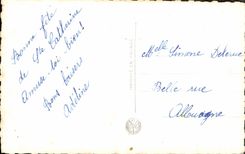 Bonne fête
de Ste Catherine
Amuse toi bien!
Bons baisers
Adeline
Melle Simone
Belle rue
Allemagne